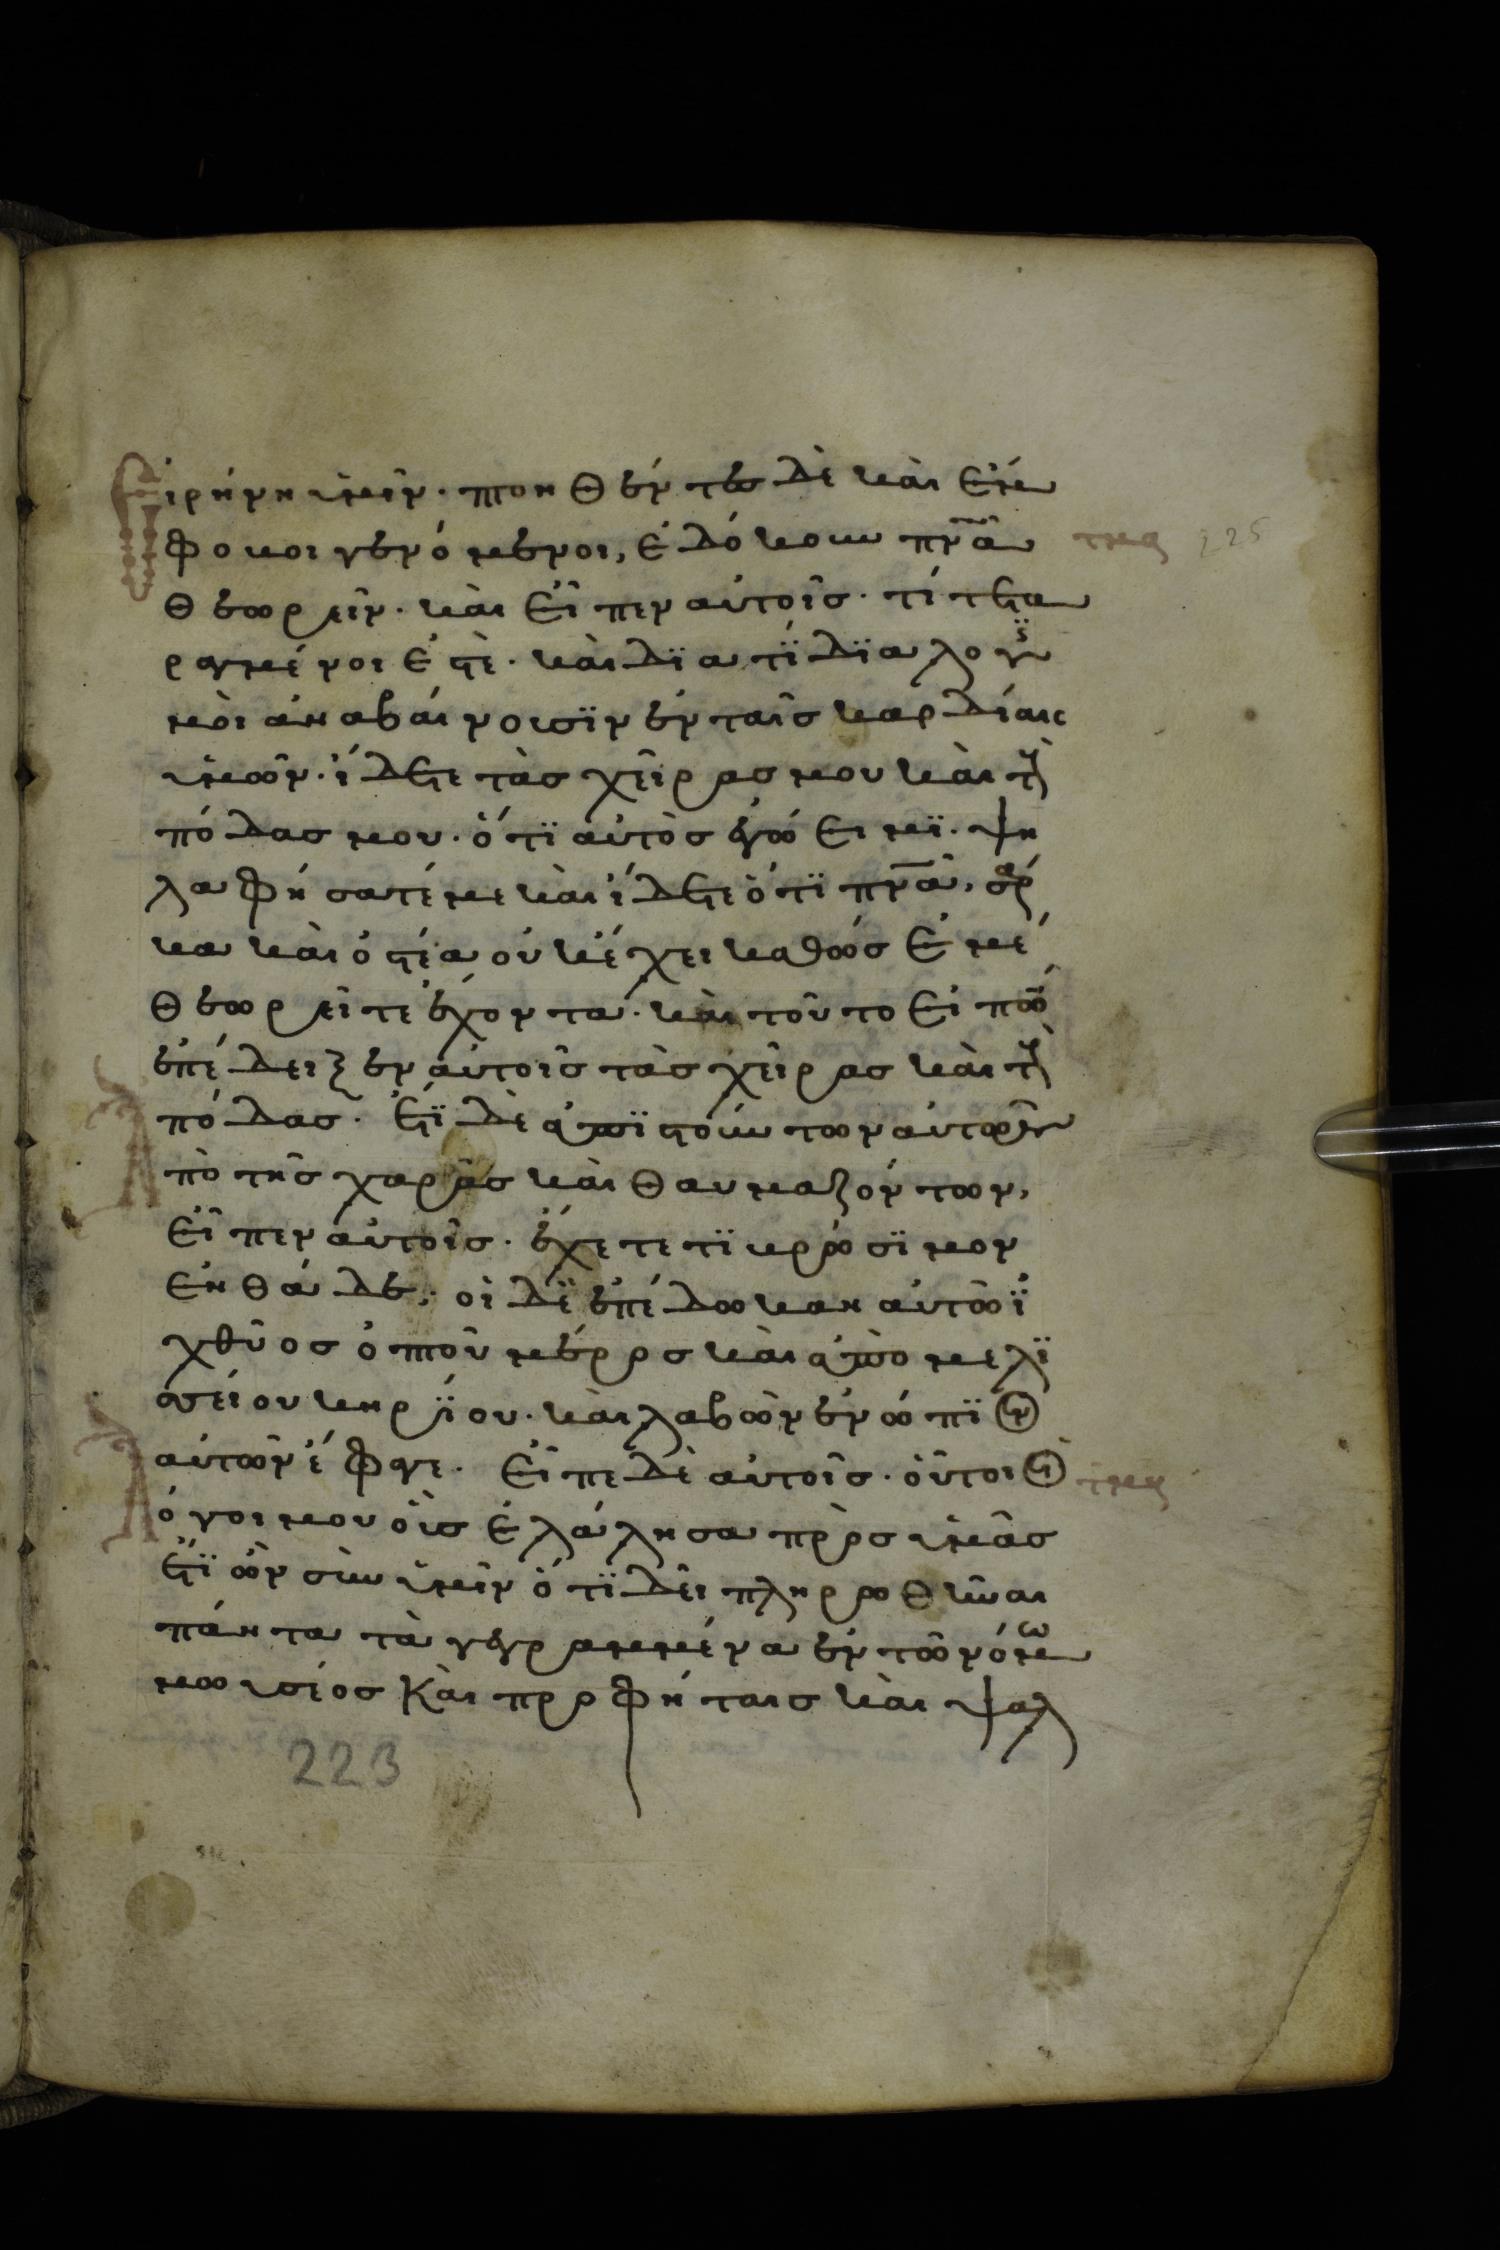 Εἰρήνη ὑμῖν· πτοηθέντες δὲ καὶ ἔμ
φοβοι γενόμενοι, ἐδόκουν πν̅α̅
θεωρεῖν· καὶ εἶπεν αὐτοῖς· τί τετα
ραγμένοι ἐστὲ· καὶ διατὶ διαλογισ
μοὶ ἀναβαίνουσϊν ἐν ταῖς καρδίαις
ὑμῶν· ἴδετε τὰς χεῖρας μου καὶ τοὺς
πόδας μου· ὅτϊ αὐτὸς ἐγώ εἰμϊ· ψη
λαφήσατέ με καὶ ἴδετε ὅτϊ πν̅α̅, σάρ
κα καὶ ὀστέα οὐκ ἔχει καθὼς ἐμέ
θεωρεῖτε ἔχοντα· καὶ τοῦτο εἰπὼν
ἐπέδειξεν αὐτοῖς τὰς χεῖρας καὶ τοὺς
πόδας· Ἔτϊ δὲ ἀπϊστούντων αὐτῶν ἀ
πὸ τῆς χαρᾶς καὶ θαυμαζόντων,
εἶπεν αὐτοῖς· ἔχετέ τϊ βρώσϊμον
ἐνθάδε; οἱ δὲ ἐπέδωκαν αὐτῶ ἰ
χθύος ὀπτοῦ μέρος καὶ ἀπὸ μελϊ
σσείου κηρΐου· καὶ λαβὼν ἐνώπϊον
αὐτῶν ἔφαγε· Εἶπε δὲ αὐτοῖς· οὗτοι οἱ λ
όγοι μου οὓς ἐλάλησα πρὸς ὑμᾶς
ἔτϊ ὢν σὺν ὑμῖν ὅτϊ δεῖ πληρωθῆναι
πάντα τὰ γεγραμμένα ἐν τῶ νόμω
μωυσέος καὶ προφήταις καὶ ψαλ
225
223